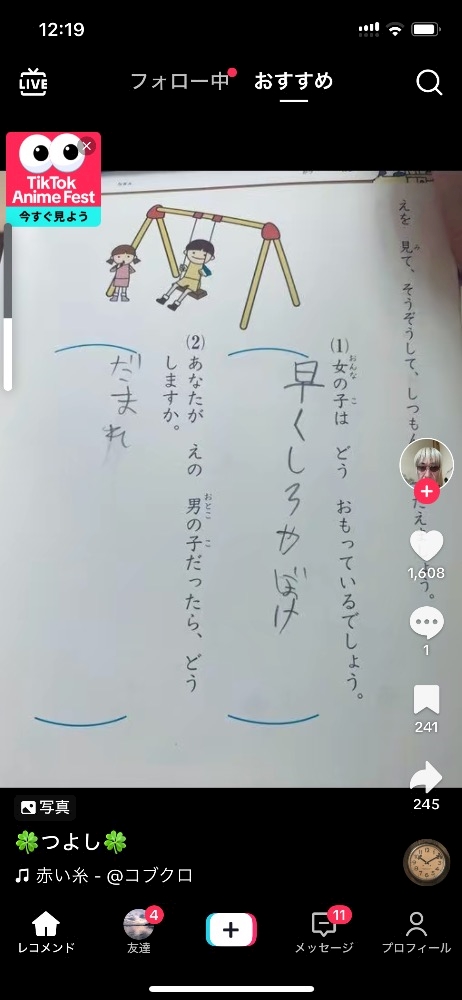 12:19
LIVE
フォロー中
おすすめ
TikTok
Anime Fest
今すぐ見よう
えを 見て、そうぞうして、しつもん
み
(1)女の子は どう おもっているでしょう。
おんな こ
早くしろやぼけ
(2)あなたが えの 男の子だったら、どう
おとこ こ
しますか。
だまれ
1,608
1
241
245
写真
🍀つよし🍀
赤い糸 - @コブクロ
レコメンド
4
友達
11
メッセージ
プロフィール